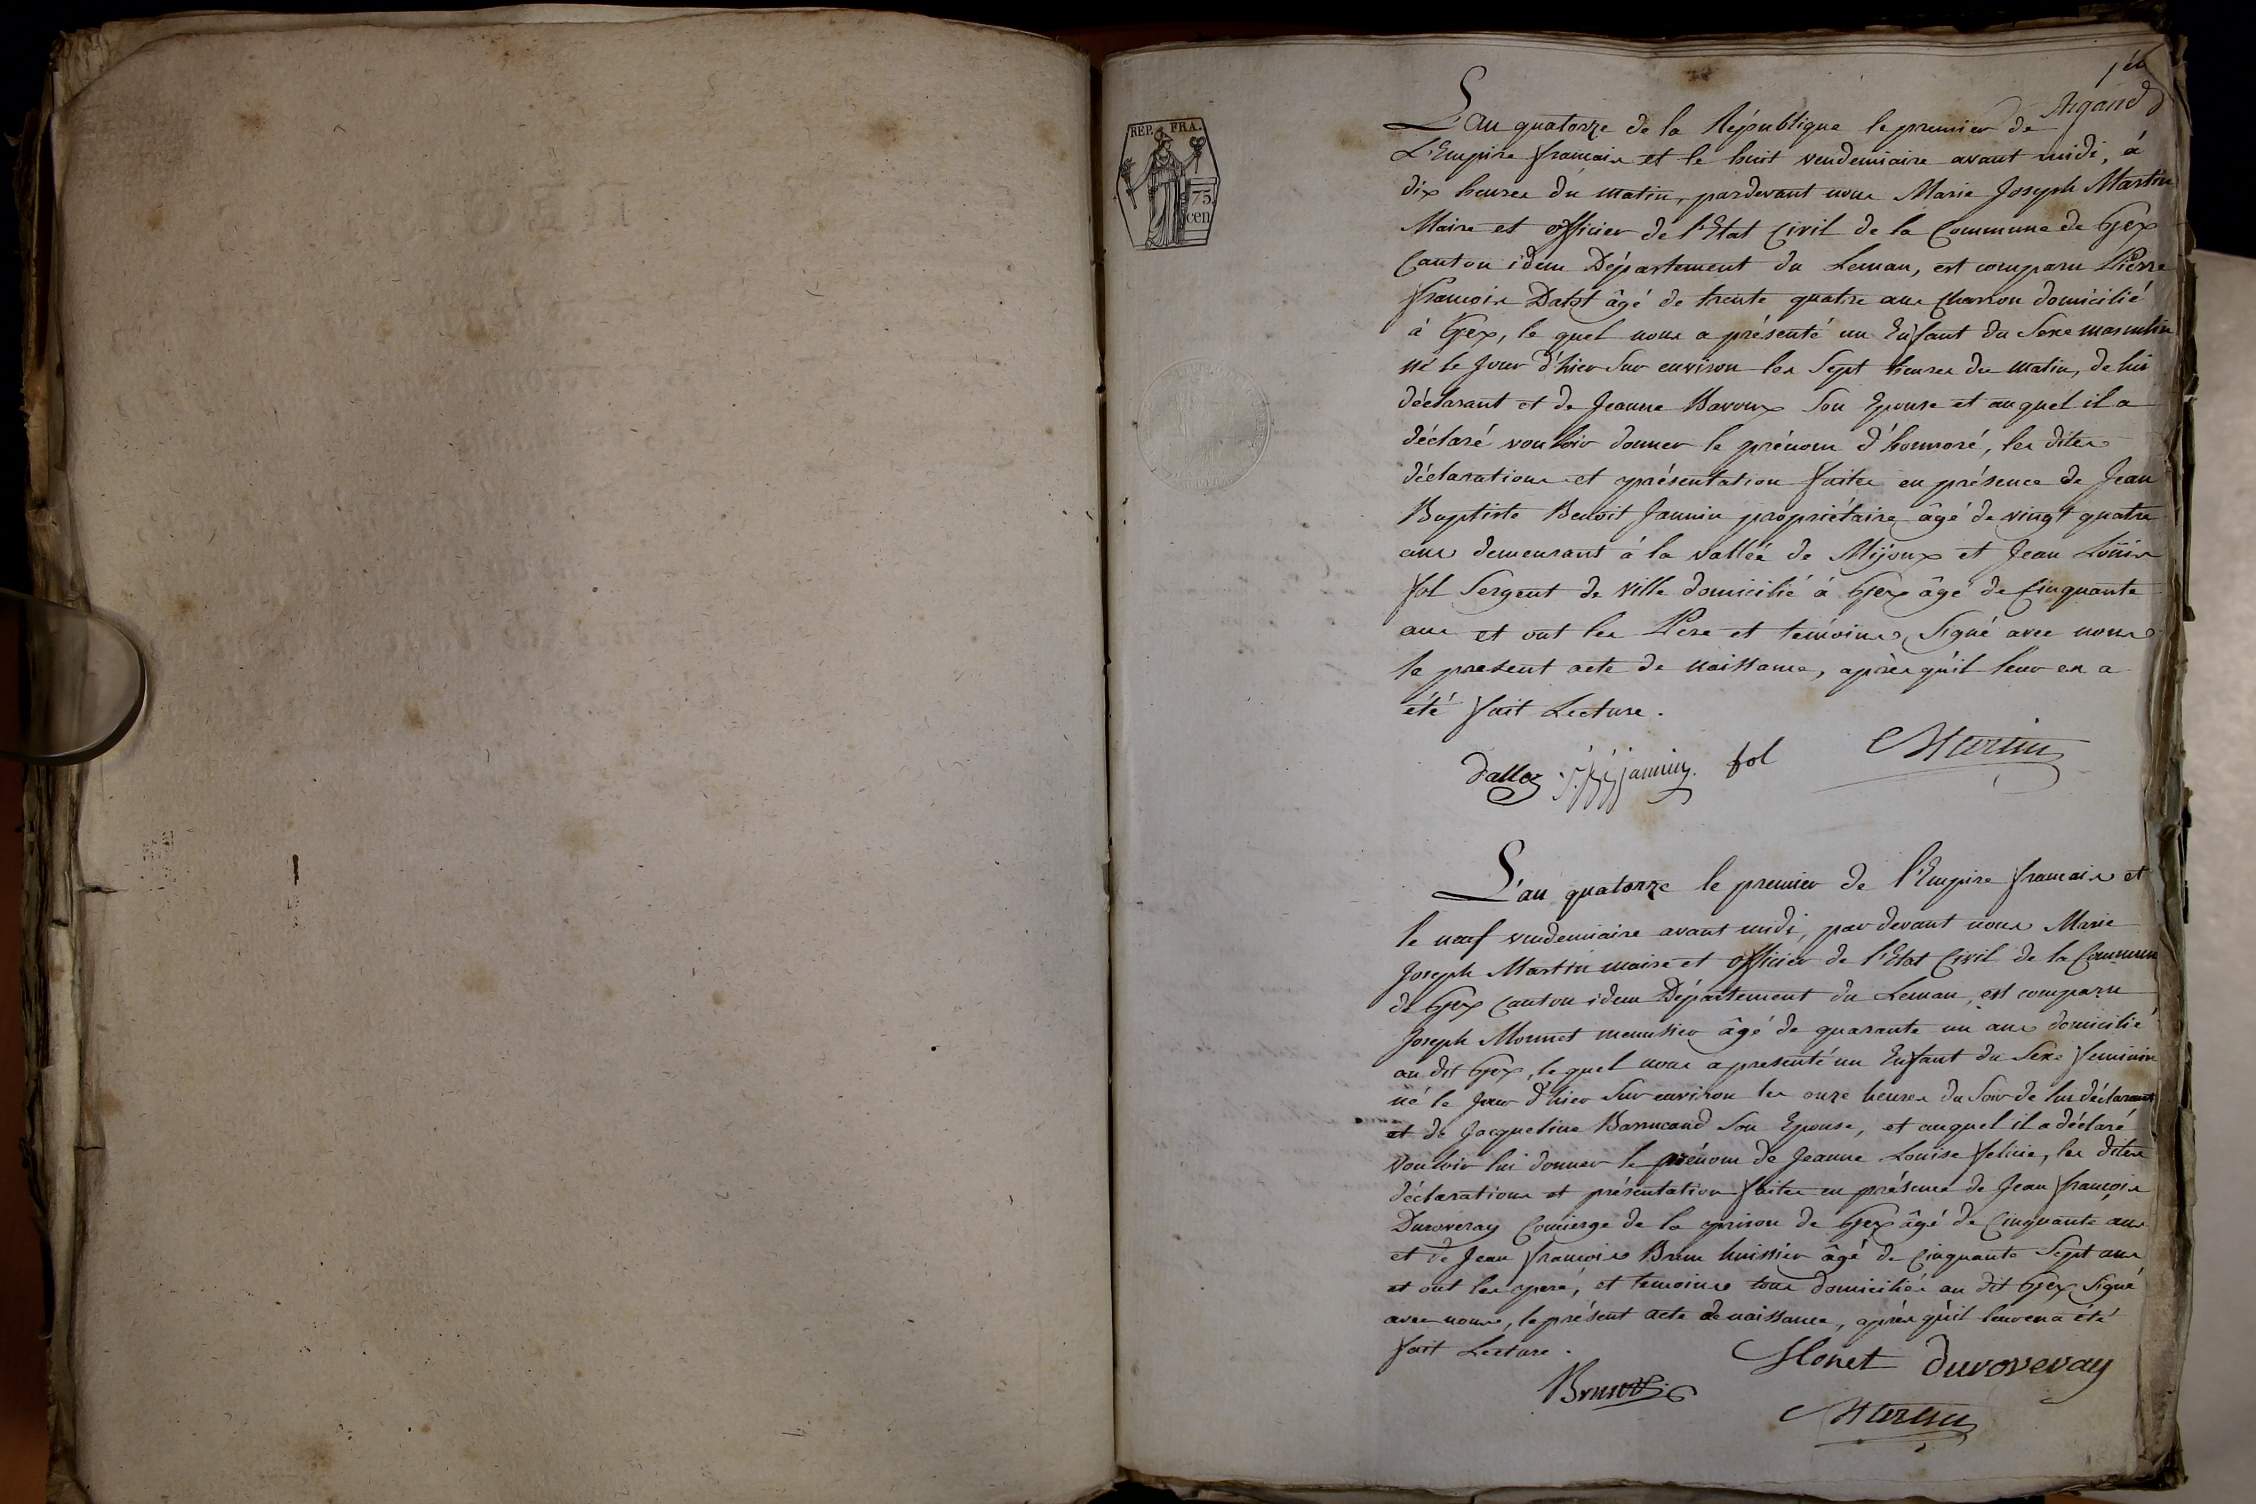 REP. FRA.
75
cen
L'an quatorze de la République le premier de
L'Empire francais et le huit vendemiaire avant midi, à
dix heures du matin, pardevant nous Marie Joseph Martin
Maire et officier de l'Etat Civil de la Commune de Gex
Canton idem Département du Leman, est comparu Pierre
françois âgé de trente quatre ans Charron domicilié
à Gex, le quel nous a présenté un Enfant du Sexe masculin
né le Jour d'hier Sur environ les Sept heures du matin, de lui
déclarant et de Jeanne Bavoux Son Epouse et auquel il a
déclaré vouloir donner le prénom d'honnoré, les dites
déclarations et présentation faites en présence de Jean
Baptiste Benoit Jannin propriétaire âgé de vingt quatre
ans demeurant à la vallée de Mijoux et Jean Loüis
fol Sergent de ville domicilié à Gex âgé de Cinquante
ans et ont les Père et temoins, Signé avec nous
le present acte de naissance, après qu'il leur en a
été fait Lecture.
dalloz jannin fol Martin
L'an quatorze le premier de l'Empire francais et
le neuf vendemiaire avant midi, par devant nous Marie
Joseph Martin maire et officier de l'Etat Civil de la Commune
de Gex Canton idem Département du Leman, est comparu
Joseph Monnet menusier âgé de quarante un ans domicilié
au dit Gex, le quel nous a presenté un Enfant du Sexe feminin
né le Jour d'hier Sur environ les onze heures du Soir de lui déclarant
et de Jacqueline Barrucand Son Epouse, et auquel il a déclaré
vouloir lui donner le prénom de Jeanne Louise felicie, les dites
déclarations et présentation faites en présence de Jean françois
Duroveray Concierge de la prison de Gex âgé de Cinquante ans
et de Jean francois Brun huissier âgé de Cinquante Sept ans
et ont les pere, et temoins tous domiciliés au dit Gex Signé
avec nous, le présent acte de naissance, après qu'il leur en a été
fait Lecture.
Monet duroveray
Brun
Martin